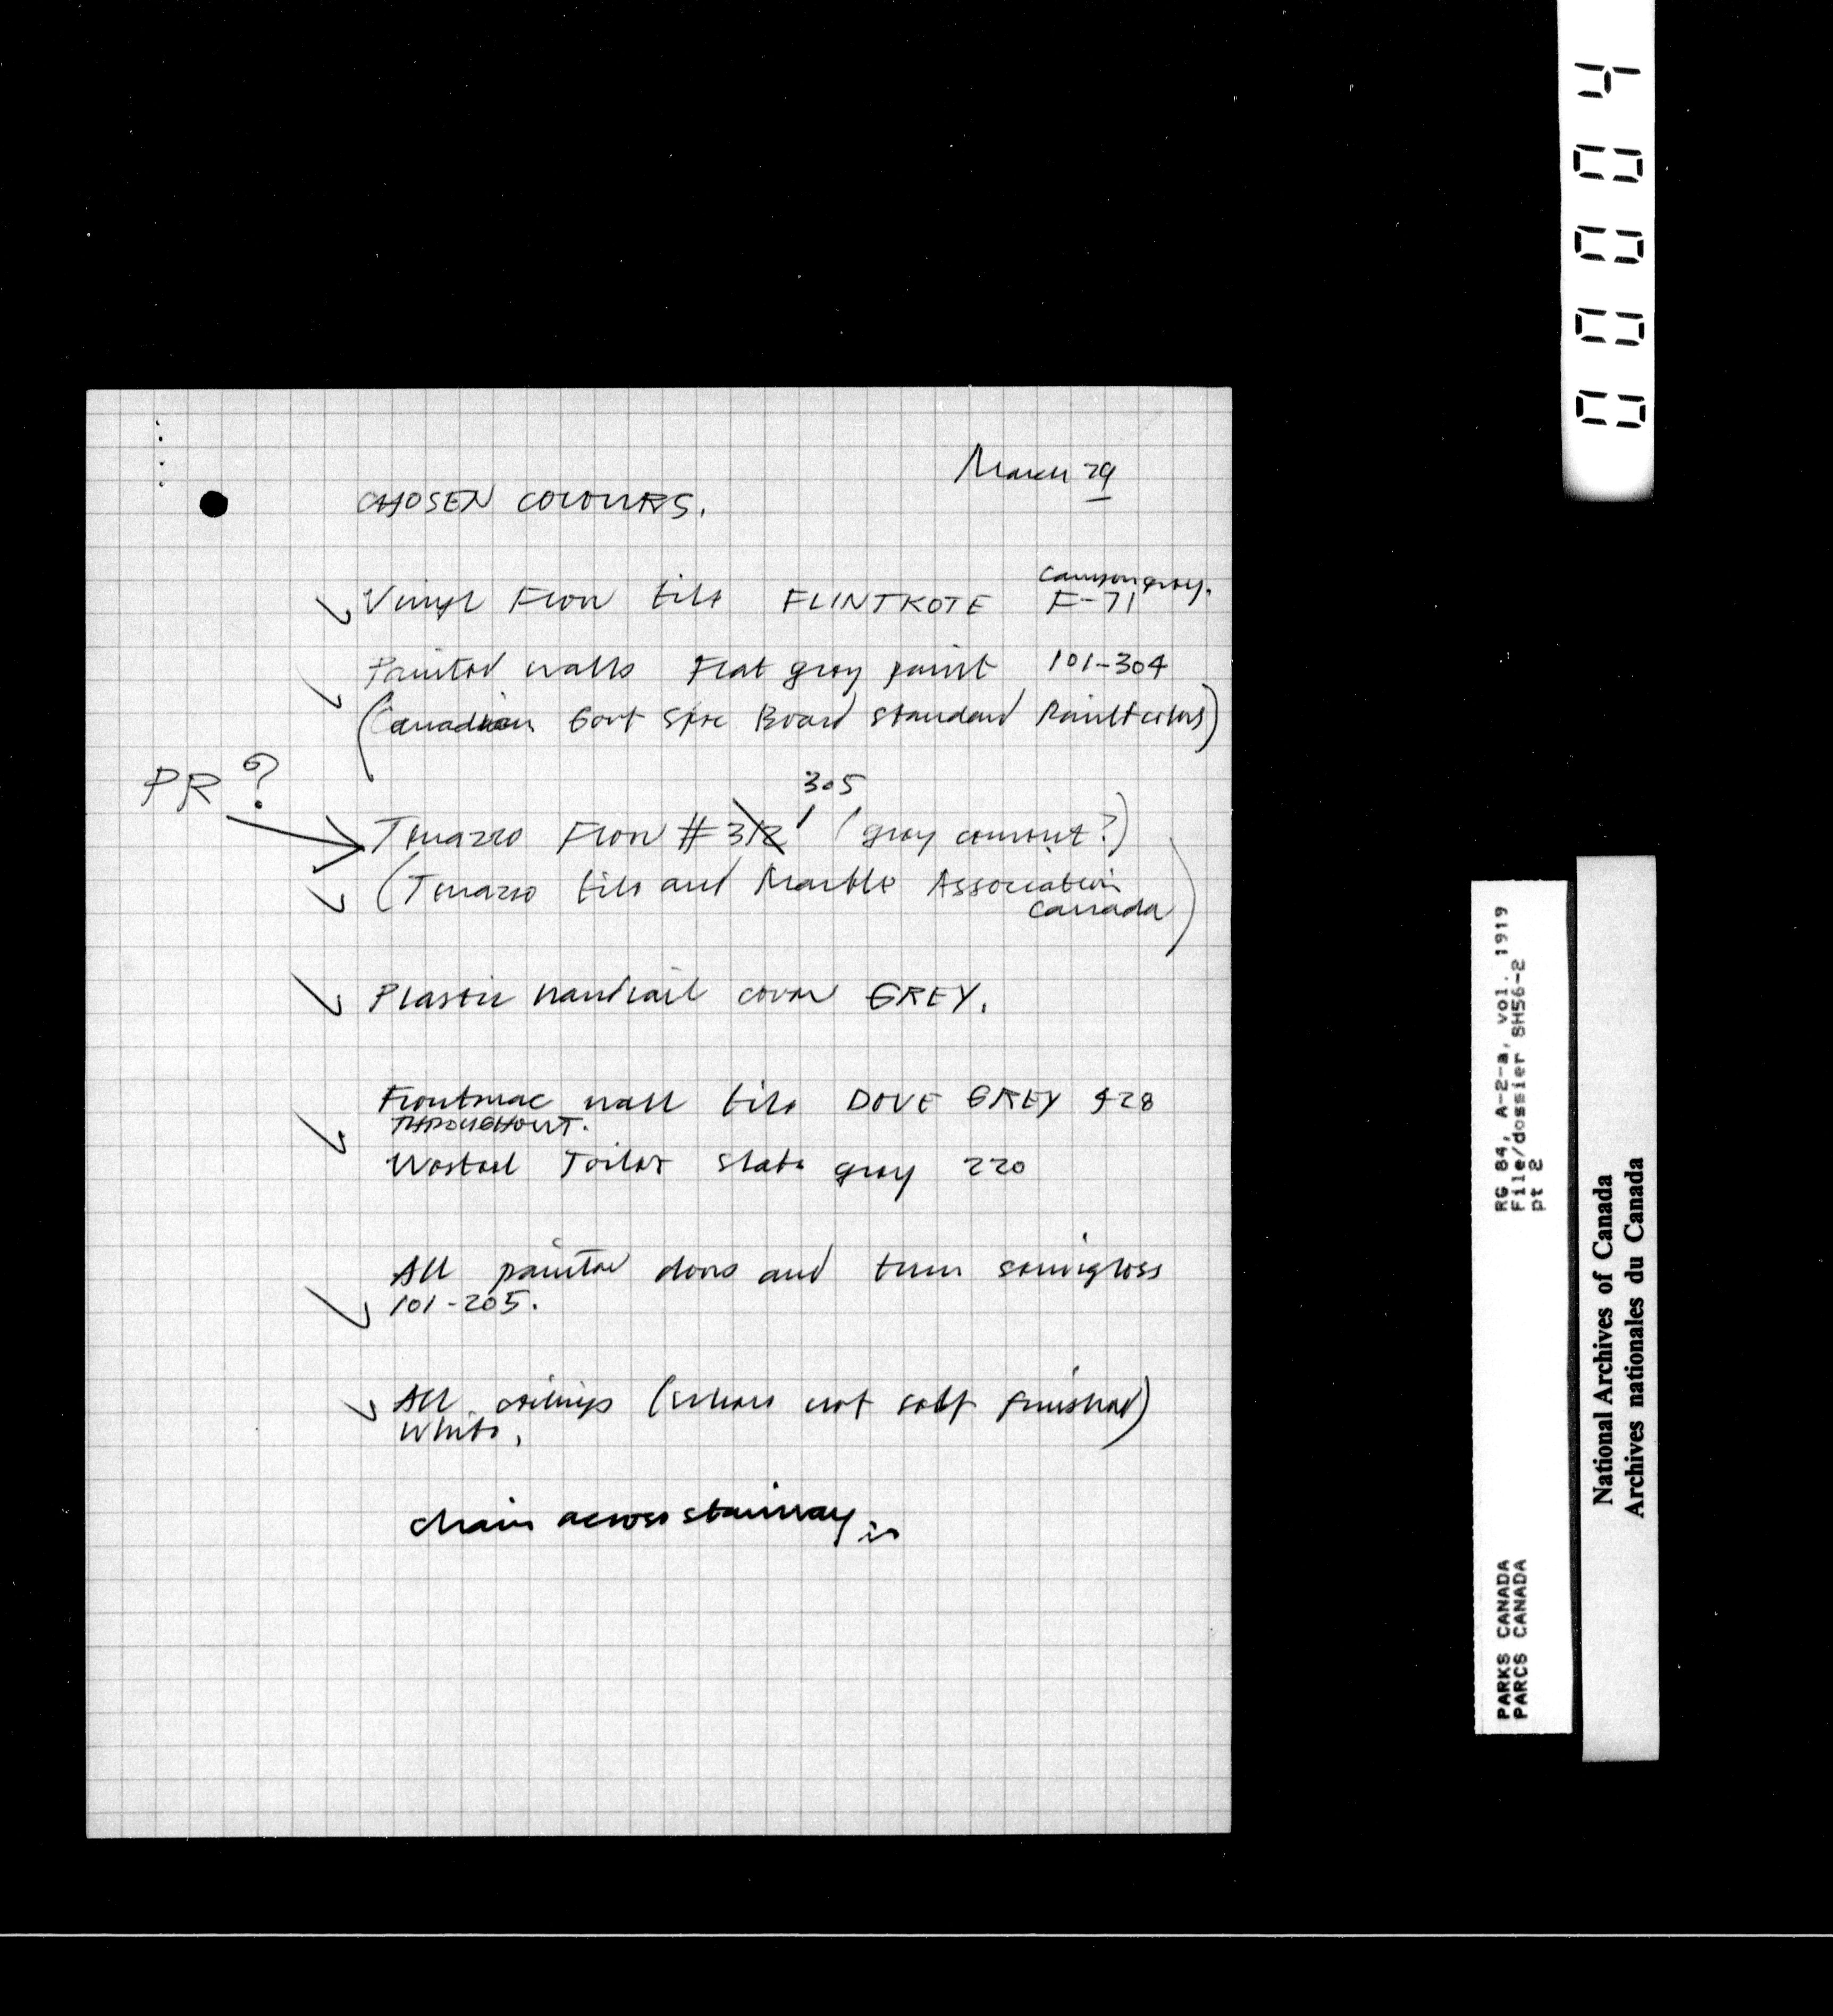 March 29
CHOSEN COLOURS.
Canyon gray.
Vinyl Floor tile FLINTKOTE F-71
Painted walls Flat gray paint 101-304
(Canadian Govt Spec Board standard Paint colors)
PR ?
305
Terrazzo Floor #312 (gray cement?)
(Terrazzo tile and Marble Association
Canada)
Plastic handrail cover GREY.
Frontenac wall tile DOVE GREY 928
THROUGHOUT.
Westeel Toilet slate gray 220
All painted doors and trim semigloss
101-205.
All ceilings (where not self finished)
White.
chain across stairway
00004
RG 84, A-2-a, vol. 1919
File/dossier 8H56-2
pt 2
PARKS CANADA
PARCS CANADA
National Archives of Canada
Archives nationales du Canada